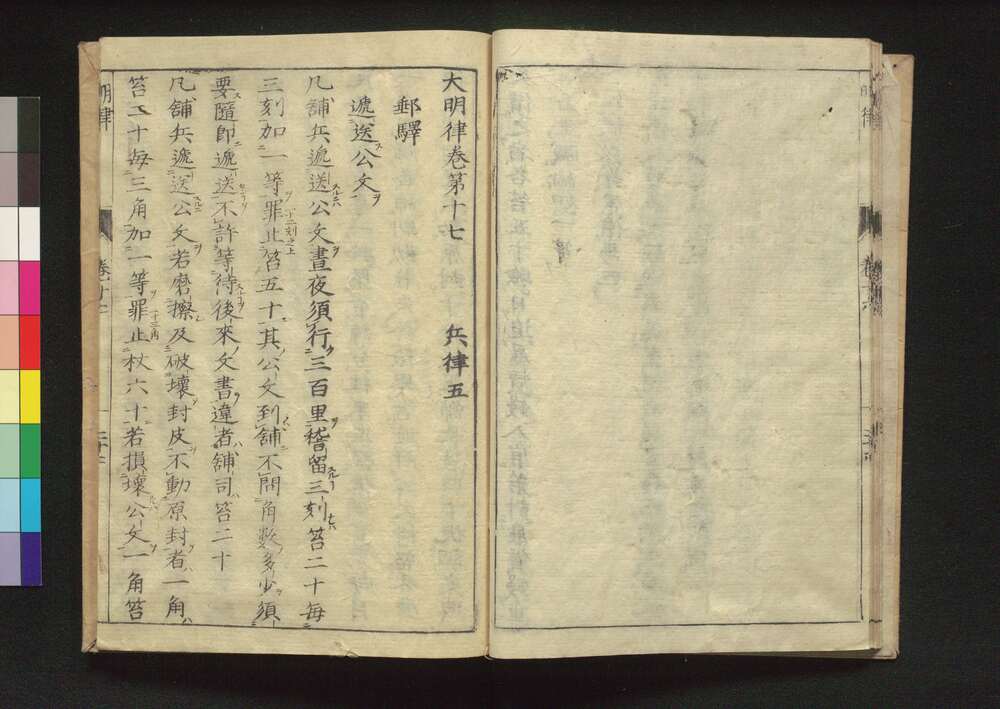 大明律卷第十七 兵律五
郵驛
遞送公文
凡舖兵遞送公文晝夜須行三百里稽留三刻笞二十每
三刻加一等罪止笞五十其公文到舖不問角數多少須
要隨即遞送不許等待後來文書違者舖司笞二十
凡舖兵遞送公文若磨擦及破壞封皮不動原封者一角
笞二十每三角加一等罪止杖六十若損壞公文一角笞
明律